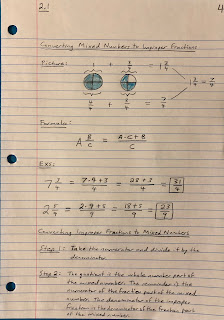 2.1
4
Converting Mixed Numbers to Improper Fractions
Picture:
1 + 3/4 = 1 3/4
4/4 + 3/4 = 7/4
1 3/4 = 7/4
Formula:
A B/C = A·C+B/C
Exs:
7 3/4 = 7·4+3/4 = 28+3/4 = 31/4
2 5/9 = 2·9+5/9 = 18+5/9 = 23/9
Converting Improper Fractions to Mixed Numbers
Step 1: Take the numerator and divide it by the
denominator.
Step 2: The quotient is the whole number part of
the mixed number. The remainder is the
numerator of the fraction part of the mixed
number. The denominator of the improper
fraction is the denominator of the fraction part
of the mixed number.